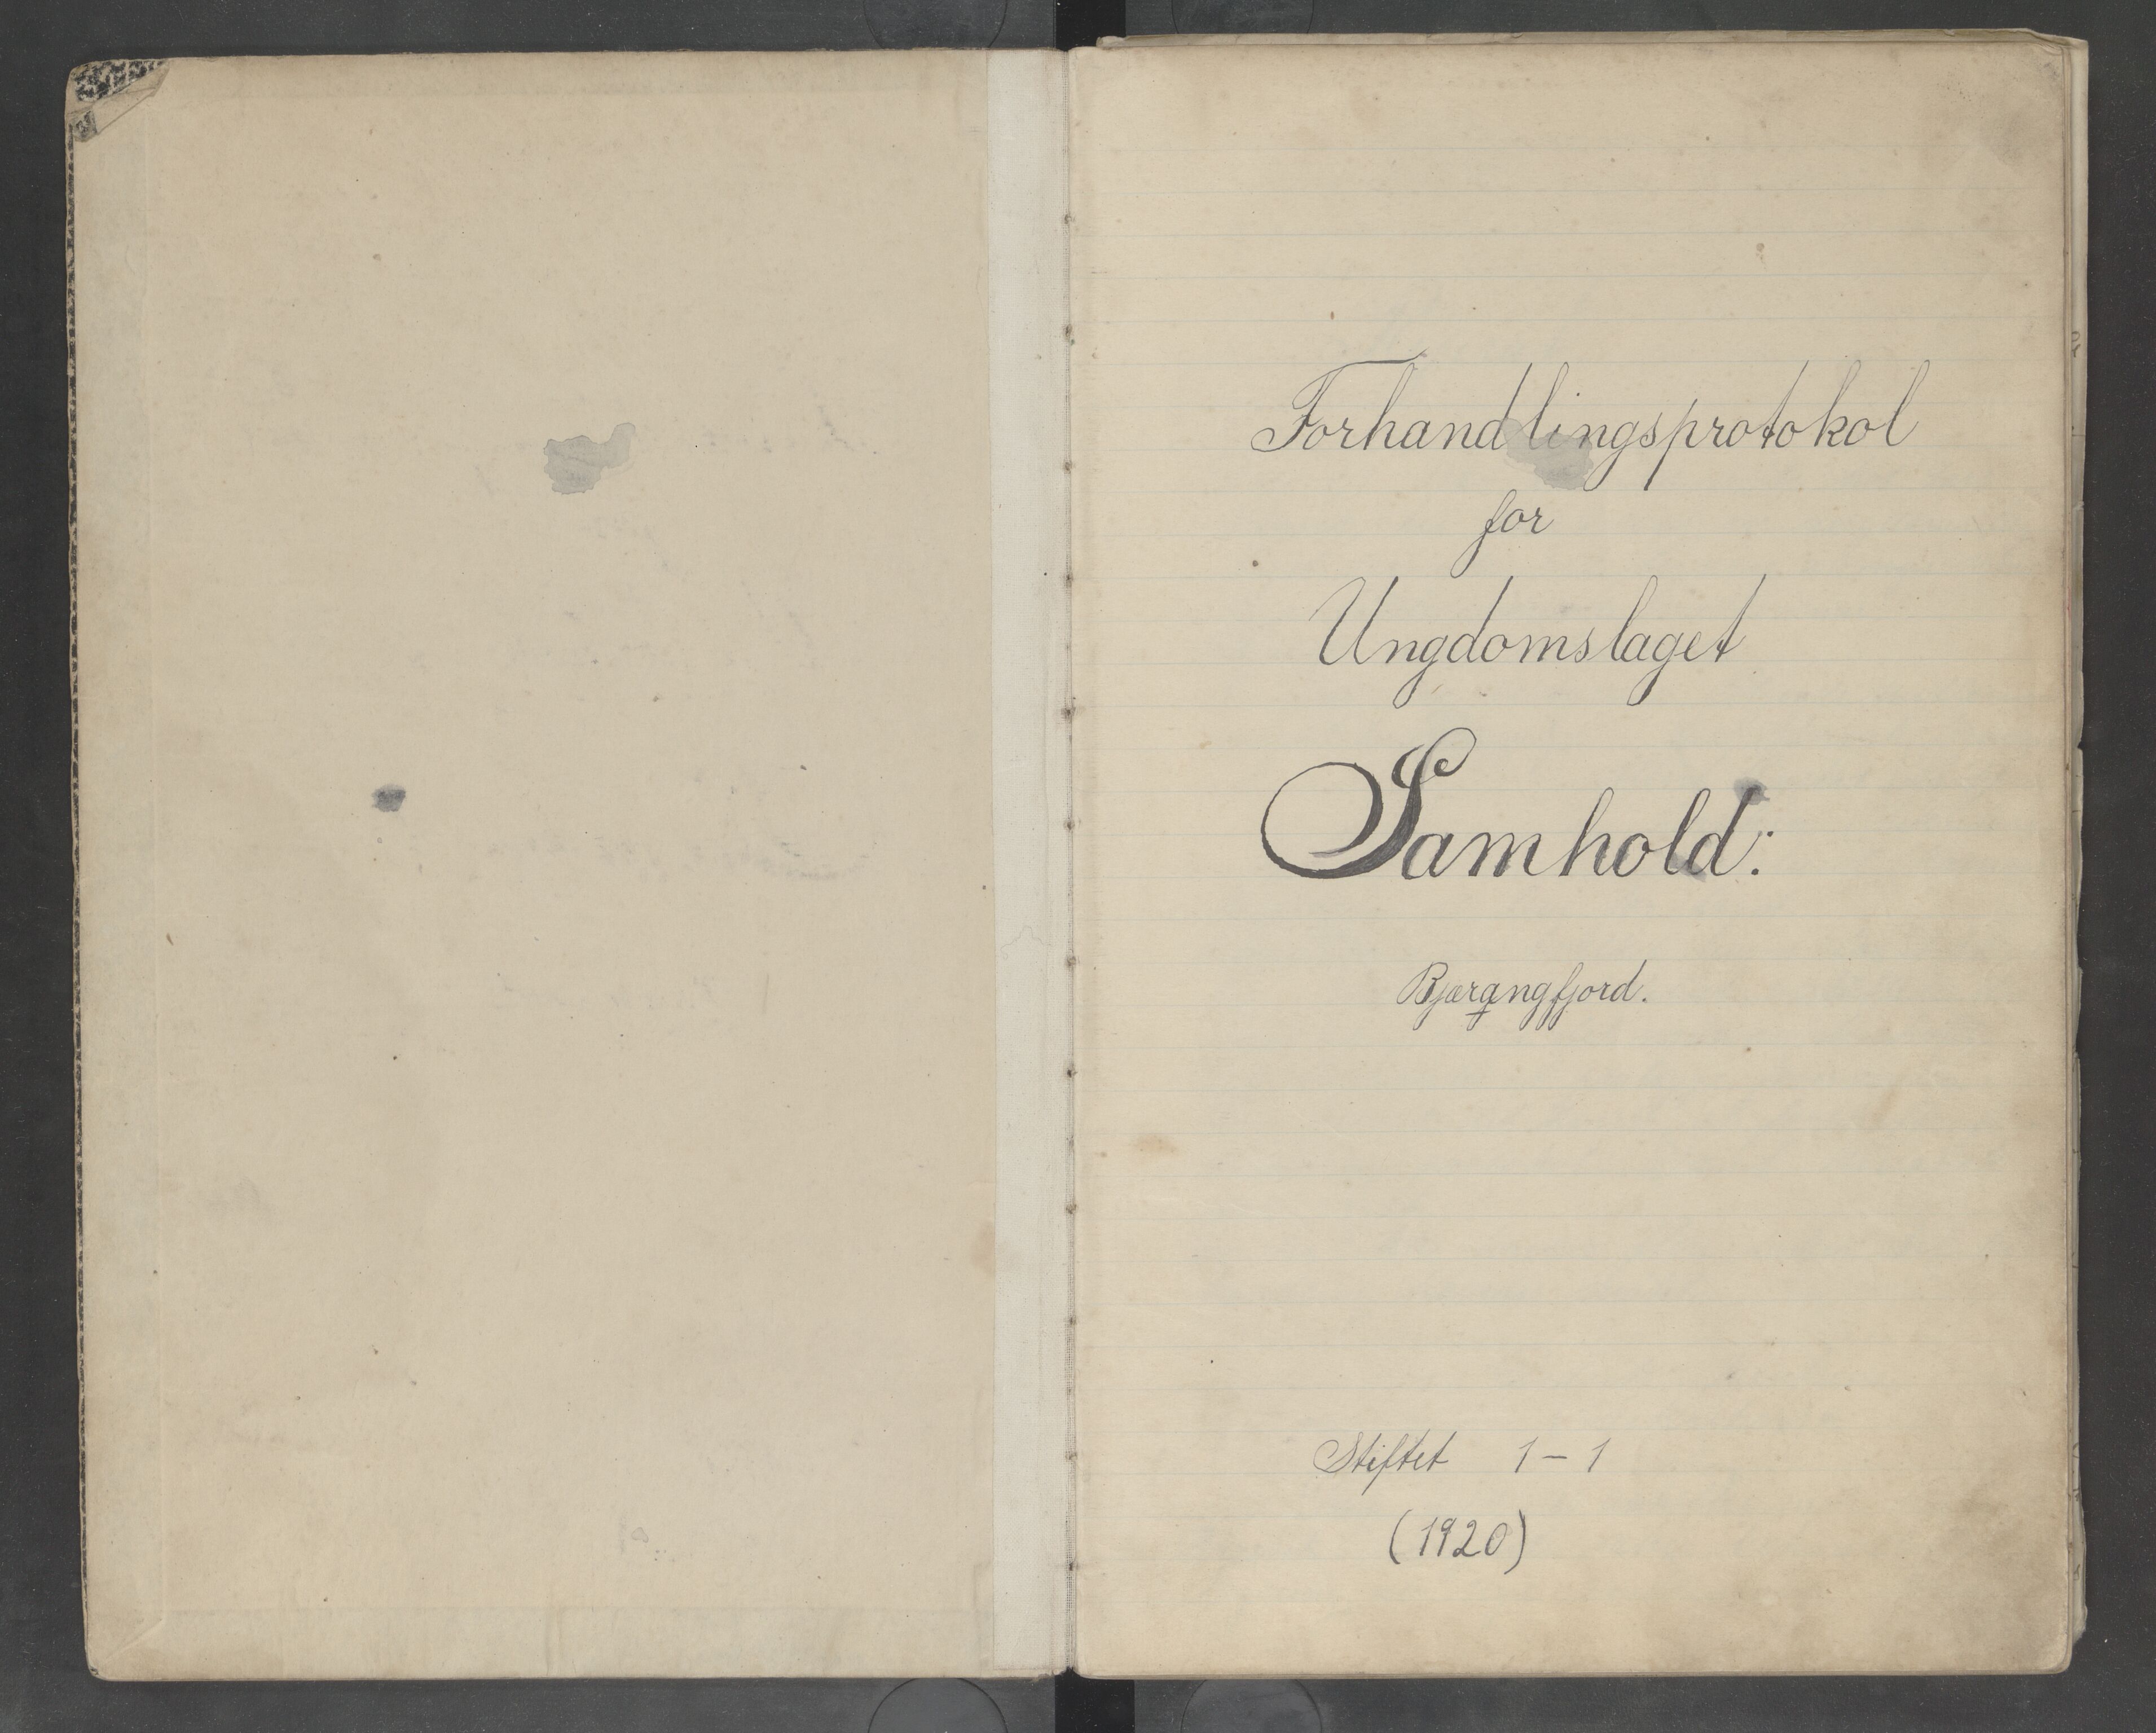 Forhandlingsprotokol
for
Ungdomslaget
Samhold:
Bjærangfjord.
Stiftet 1-1
(1920)